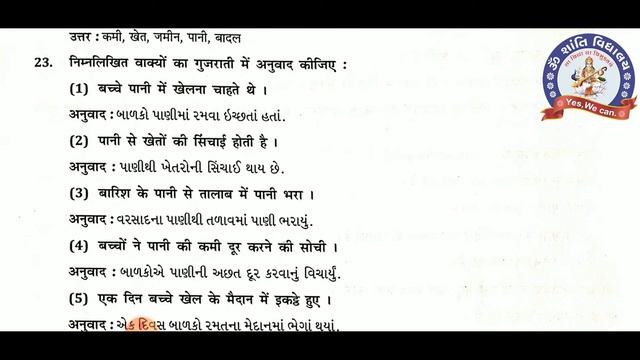 उत्तर : कमी, खेत, जमीन, पानी, बादल
23. निम्नलिखित वाक्यों का गुजराती में अनुवाद कीजिए :
(1) बच्चे पानी में खेलना चाहते थे ।
अनुवाद : બાળકો પાણીમાં રમવા ઇચ્છતાં હતાં.
(2) पानी से खेतों की सिंचाई होती है ।
अनुवाद : પાણીથી ખેતરોની સિંચાઈ થાય છે.
(3) बारिश के पानी से तालाब में पानी भरा ।
अनुवाद : વરસાદના પાણીથી તળાવમાં પાણી ભરાયું.
(4) बच्चों ने पानी की कमी दूर करने की सोची ।
अनुवाद : બાળકોએ પાણીની અછત દૂર કરવાનું વિચાર્યું.
(5) एक दिन बच्चे खेल के मैदान में इकट्ठे हुए ।
अनुवाद : એક દિવસ બાળકો રમતના મેદાનમાં ભેગાં થયાં.
ॐ शांति विद्यालय
Yes, We can.